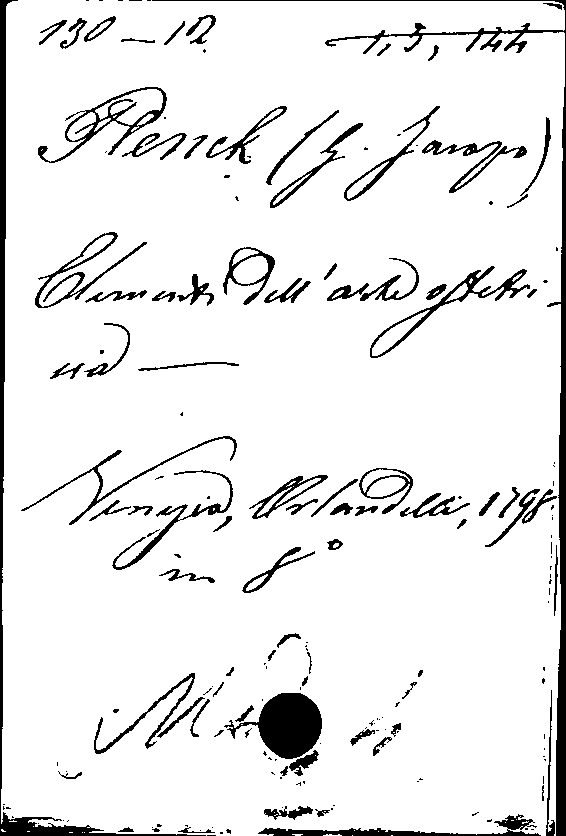 130 – 12 1, 3, 144
Plenck (G. Jacopo).
Elementi dell'arte ostetri-
cia —
Venezia, Orlandelli, 1798.
in 8°